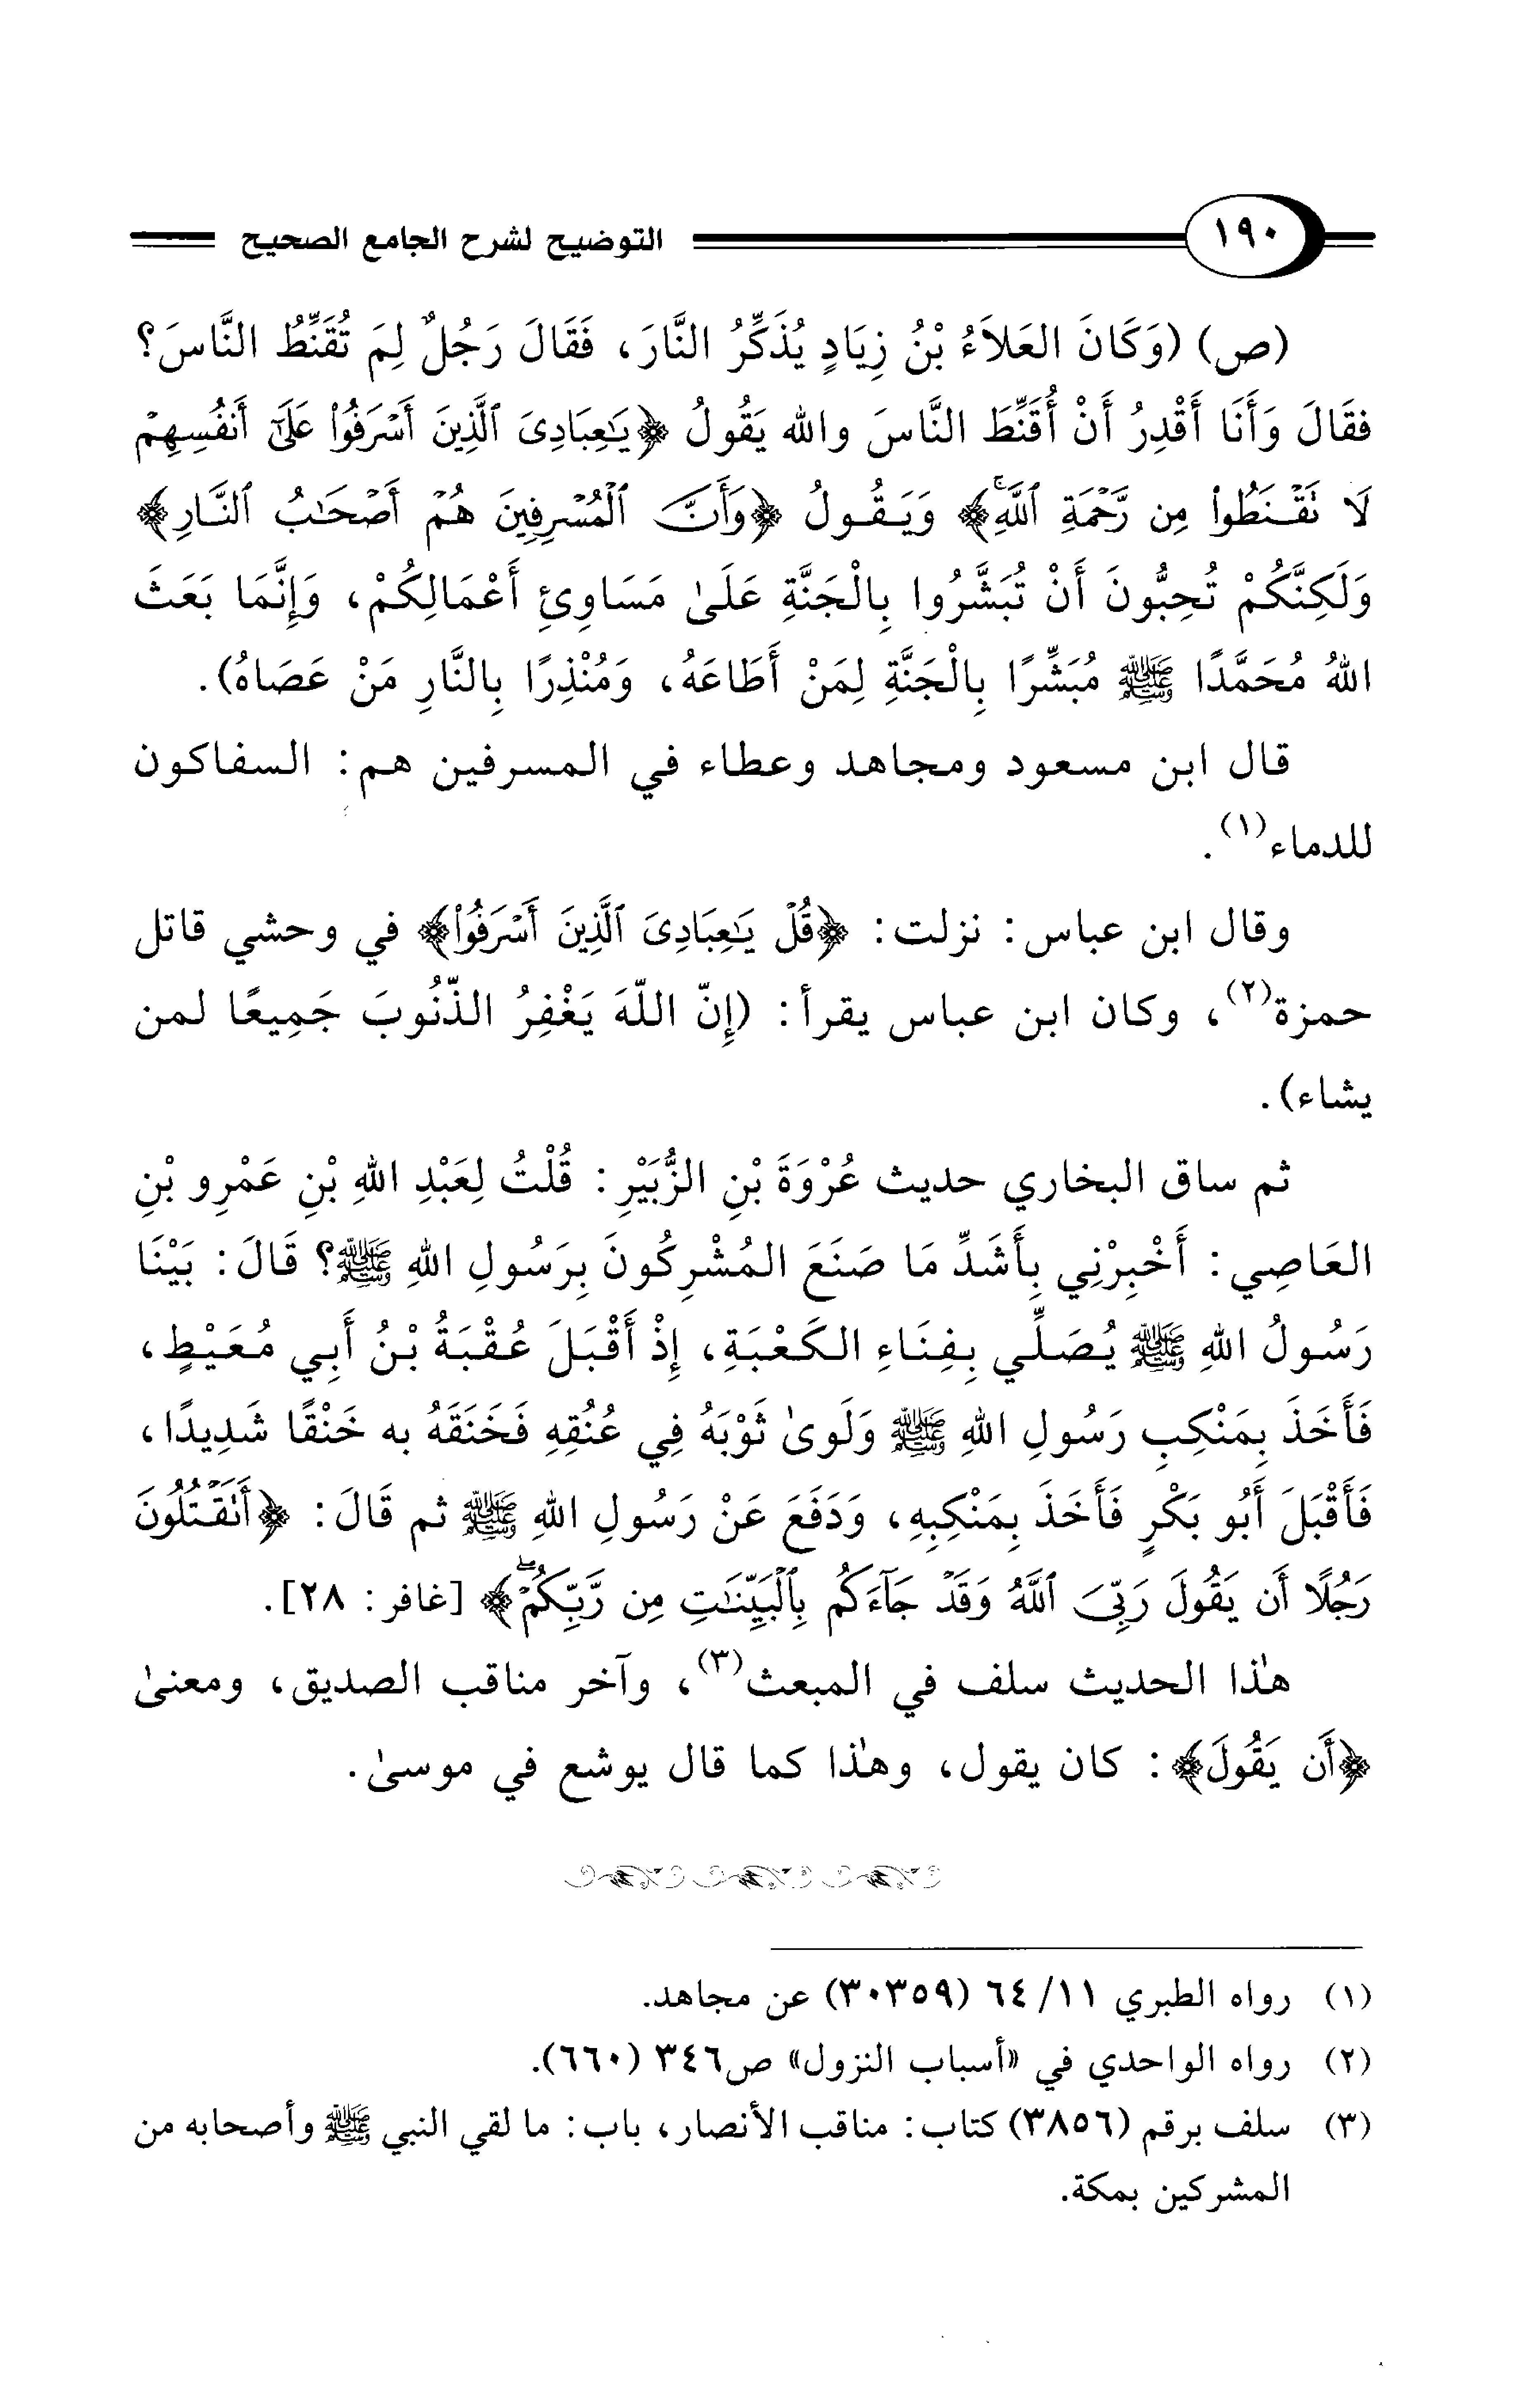 ١٩٠
التوضيح لشرح الجامع الصحيح
(ص) (وَكَانَ العَلاَءُ بْنُ زِيَادٍ يُذَكِّرُ النَّارَ، فَقَالَ رَجُلٌ لِمَ تُقَنِّطُ النَّاسَ؟
فقَالَ وَأَنَا أَقْدِرُ أَنْ أُقَنِّطَ النَّاسَ والله يَقُولُ ﴿يَٰعِبَادِىَ ٱلَّذِينَ أَسْرَفُوا۟ عَلَىٰٓ أَنفُسِهِمْ
لَا تَقْنَطُوا۟ مِن رَّحْمَةِ ٱللَّهِۚ﴾ وَيَقُولُ ﴿وَأَنَّ ٱلْمُسْرِفِينَ هُمْ أَصْحَٰبُ ٱلنَّارِ﴾
وَلَكِنَّكُمْ تُحِبُّونَ أَنْ تُبَشَّرُوا بِالْجَنَّةِ عَلَىٰ مَسَاوِئِ أَعْمَالِكُمْ، وَإِنَّمَا بَعَثَ
اللهُ مُحَمَّدًا ﷺ مُبَشِّرًا بِالْجَنَّةِ لِمَنْ أَطَاعَهُ، وَمُنْذِرًا بِالنَّارِ مَنْ عَصَاهُ).
قال ابن مسعود ومجاهد وعطاء في المسرفين هم: السفاكون
للدماء(١).
وقال ابن عباس: نزلت: ﴿قُلْ يَٰعِبَادِىَ ٱلَّذِينَ أَسْرَفُوا۟﴾ في وحشي قاتل
حمزة(٢)، وكان ابن عباس يقرأ: (إِنّ اللّهَ يَغْفِرُ الذّنُوبَ جَمِيعًا لمن
يشاء).
ثم ساق البخاري حديث عُرْوَةَ بْنِ الزُّبَيْرِ: قُلْتُ لِعَبْدِ اللهِ بْنِ عَمْرِو بْنِ
العَاصِي: أَخْبِرْنِي بِأَشَدِّ مَا صَنَعَ المُشْرِكُونَ بِرَسُولِ اللهِ ﷺ؟ قَالَ: بَيْنَا
رَسُولُ اللهِ ﷺ يُصَلِّي بِفِنَاءِ الكَعْبَةِ، إِذْ أَقْبَلَ عُقْبَةُ بْنُ أَبِي مُعَيْطٍ،
فَأَخَذَ بِمَنْكِبِ رَسُولِ اللهِ ﷺ وَلَوىٰ ثَوْبَهُ فِي عُنُقِهِ فَخَنَقَهُ به خَنْقًا شَدِيدًا،
فَأَقْبَلَ أَبُو بَكْرٍ فَأَخَذَ بِمَنْكِبِهِ، وَدَفَعَ عَنْ رَسُولِ اللهِ ﷺ ثم قَالَ: ﴿أَتَقْتُلُونَ
رَجُلًا أَن يَقُولَ رَبِّىَ ٱللَّهُ وَقَدْ جَآءَكُم بِٱلْبَيِّنَٰتِ مِن رَّبِّكُمْۖ﴾ [غافر: ٢٨].
هٰذا الحديث سلف في المبعث(٣)، وآخر مناقب الصديق، ومعنىٰ
﴿أَن يَقُولَ﴾: كان يقول، وهٰذا كما قال يوشع في موسىٰ.
(١) رواه الطبري ١١/ ٦٤ (٣٠٣٥٩) عن مجاهد.
(٢) رواه الواحدي في «أسباب النزول» ص٣٤٦ (٦٦٠).
(٣) سلف برقم (٣٨٥٦) كتاب: مناقب الأنصار، باب: ما لقي النبي ﷺ وأصحابه من
المشركين بمكة.